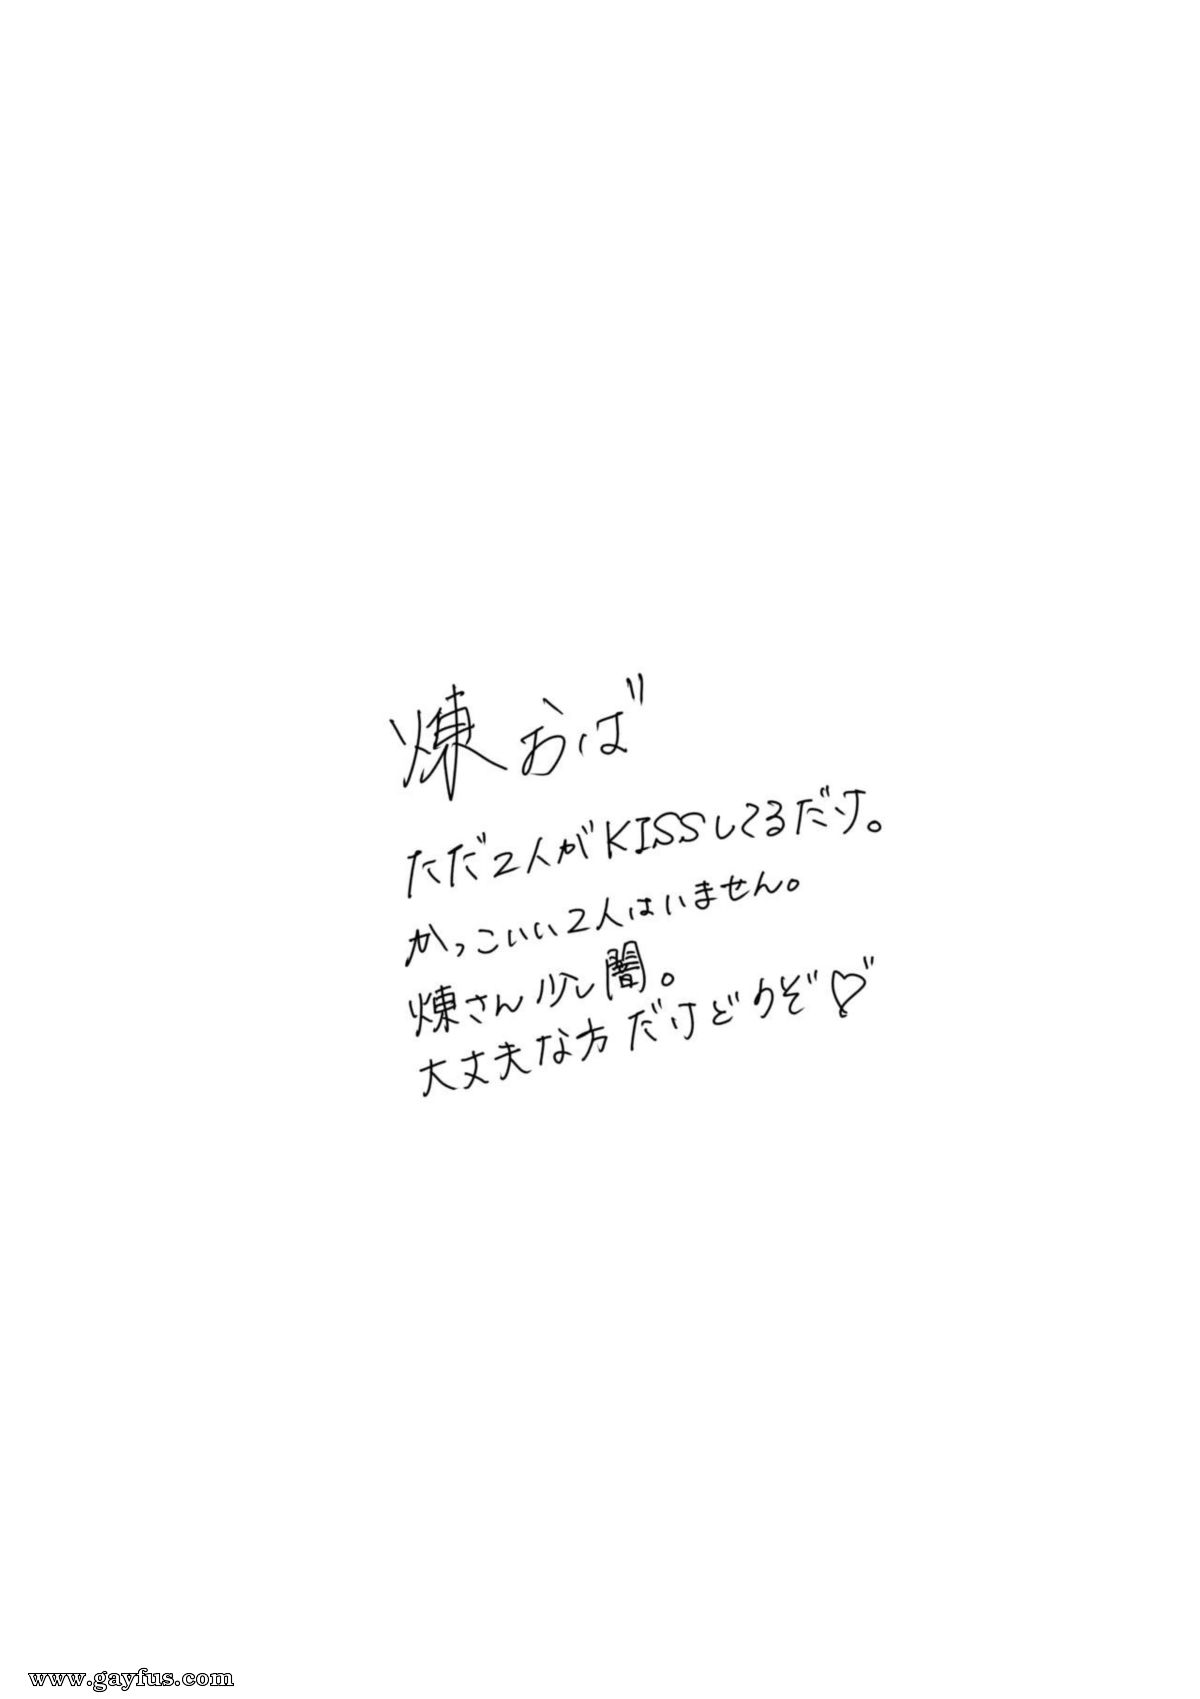 煉おば
ただ2人がKISSしてるだけ。
かっこいい2人はいません。
煉さん少し闇。
大丈夫な方だけどうぞ♡゛
www.gayfus.com